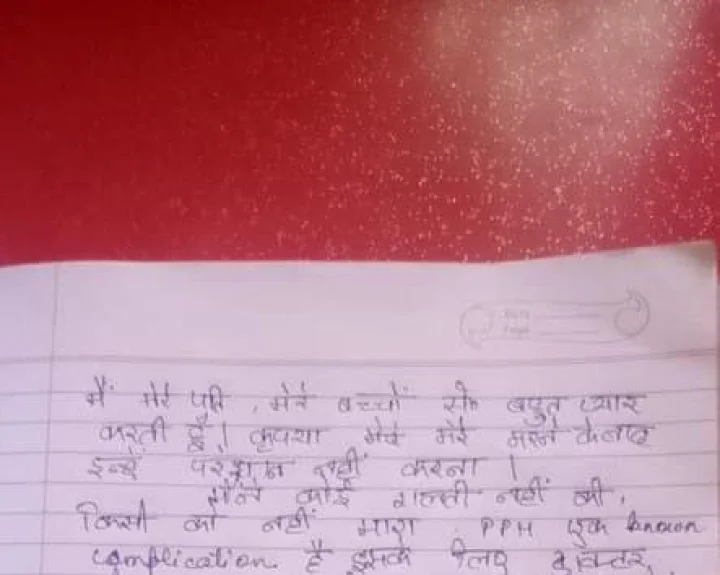 Date
Page
मैं मेरे पति, मेरे बच्चों से बहुत प्यार
करती हूँ। कृपया मेरे मेरे मरने के बाद
इन्हें परेशान नहीं करना।
मैंने कोई गलती नहीं की,
किसी को नहीं मारा PPH एक known
complication है इसके लिए डॉक्टर